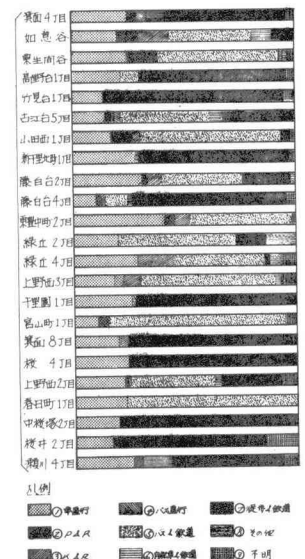 箕面4丁目
如意谷
粟生間谷
高野台1丁目
竹見台1丁目
古江台5丁目
小田町1丁目
新千里南町1丁目
藤白台2丁目
藤白台4丁目
緑丘2丁目
緑丘4丁目
上野西3丁目
千里園1丁目
宮山町1丁目
箕面8丁目
桜 4丁目
上野西2丁目
春日町1丁目
中桜塚2丁目
桜井2丁目
瀬川4丁目
凡例
①車直行
④バス直行
⑦徒歩&鉄道
②P&R
⑤バス&鉄道
⑧その他
③K&R
⑥自転車&鉄道
⑨不明